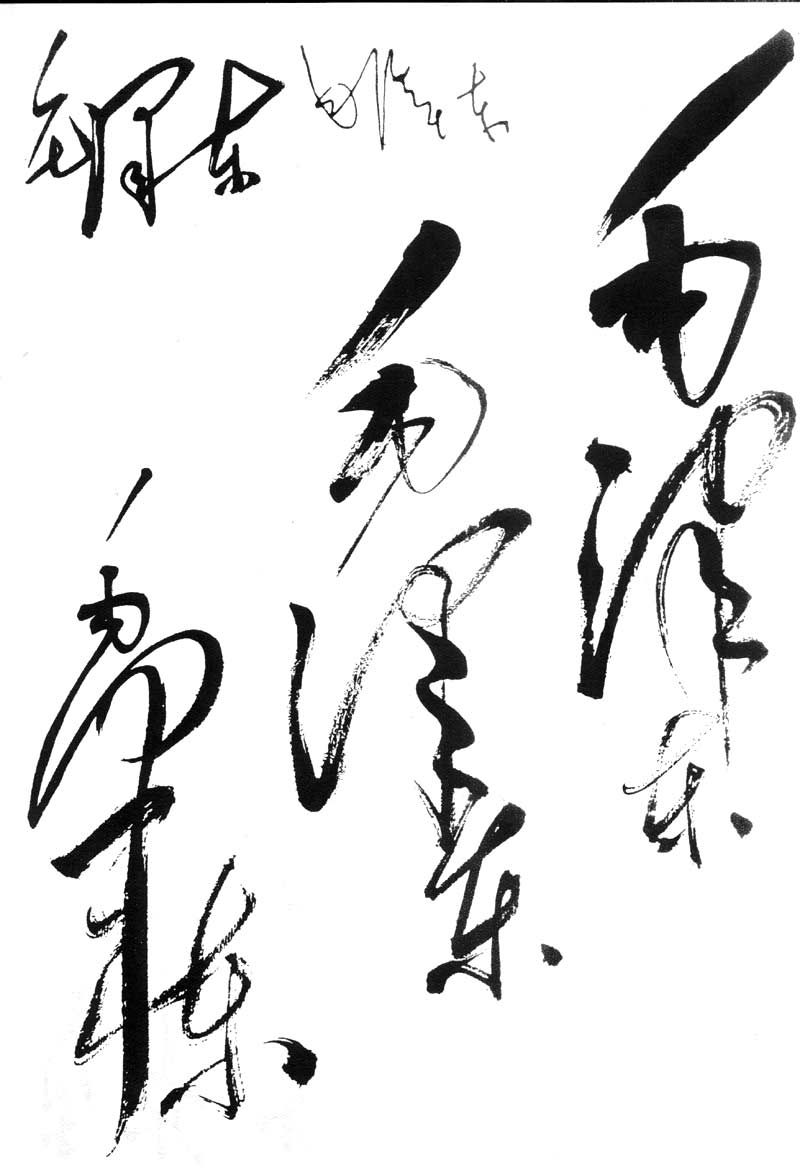 毛泽东
毛泽东
毛泽东
毛泽东
毛泽东